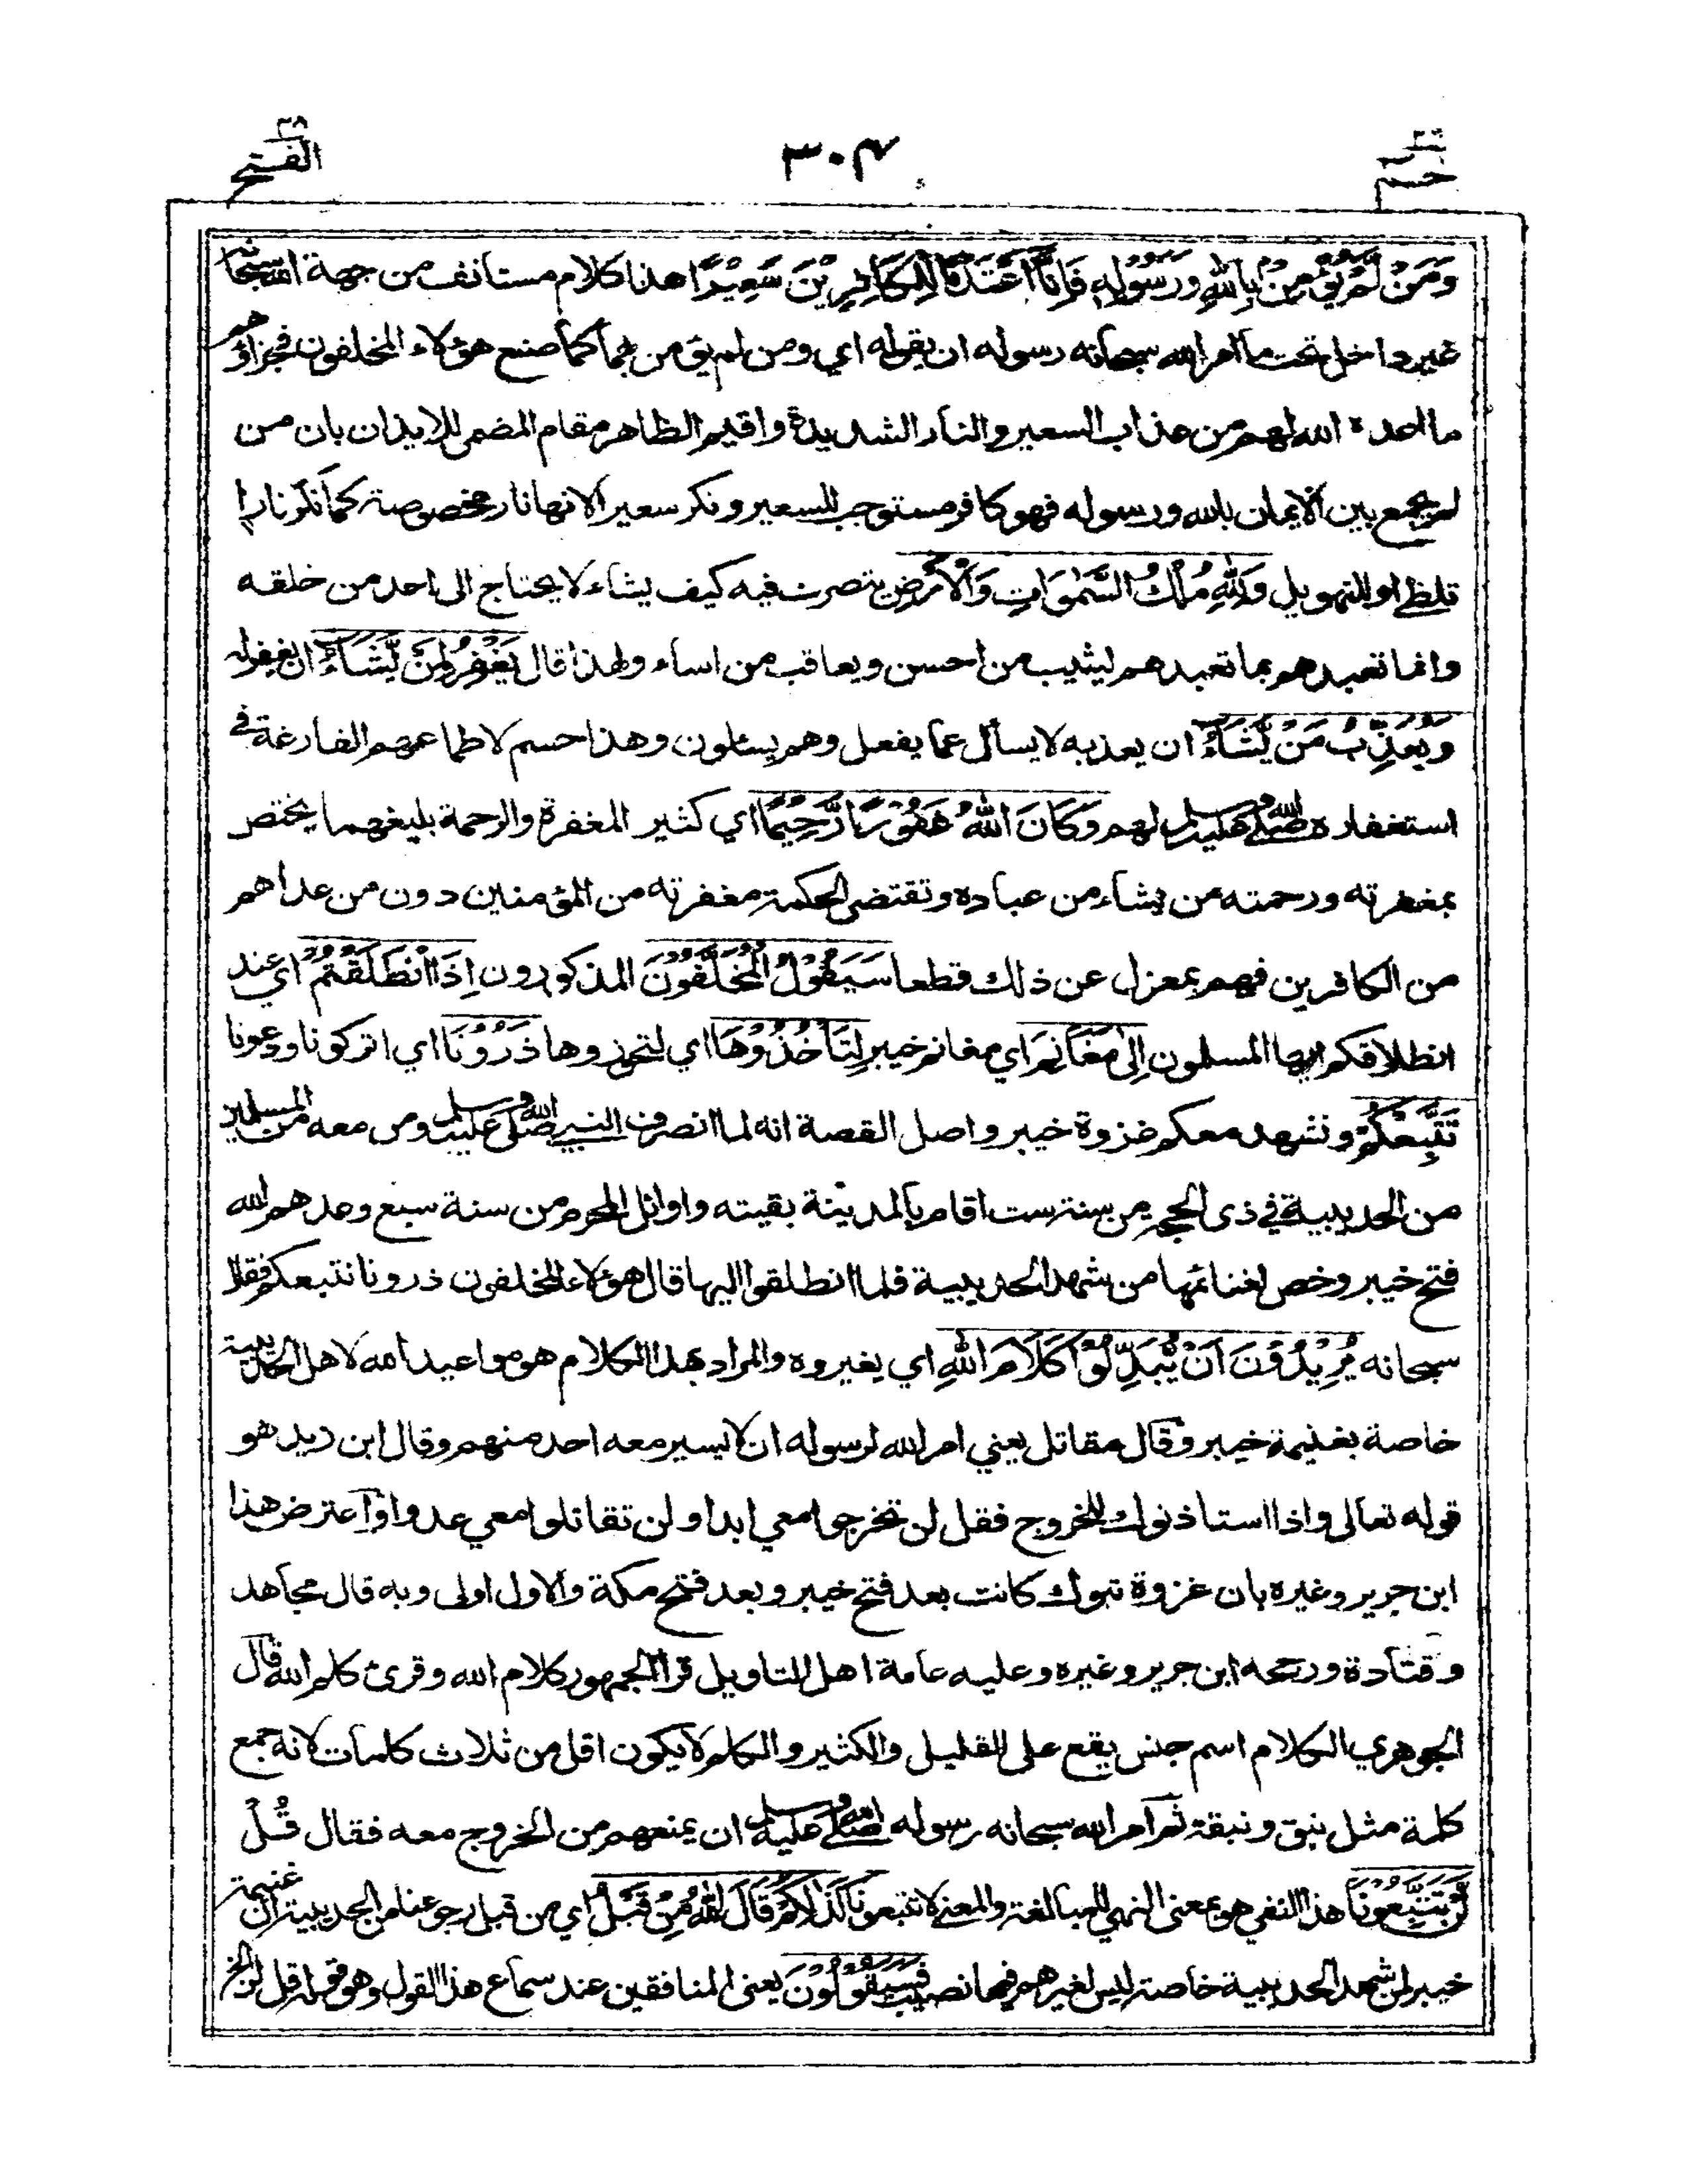 حٰم ٢٦
٣٠٤
الفتح ٤٨
وَمَنْ لَّمْ يُؤْمِنْ بِاللهِ وَرَسُوْلِهٖ فَاِنَّا اَعْتَدْنَا لِلْكَافِرِيْنَ سَعِيْرًا هذا كلام مستانف من جهة الله سبحانه
غير داخل تحت ما امر الله سبحانه رسوله ان يقوله اي ومن لم يؤمن بهما كما صنع هؤلاء المخلفون فجزاؤهم
ما اعده الله لهم من عذاب السعير والنار الشديدة واقيم الظاهر مقام المضمر للايذان بان من
لم يجمع بين الايمان بالله ورسوله فهو كافر مستوجب للسعير ونكر سعيرا لانها نار مخصوصة كما نكر نارا
تلظى او للتهويل وَلِلّٰهِ مُلْكُ السَّمٰوَاتِ وَالْاَرْضِ يتصرف فيه كيف يشاء لا يحتاج الى احد من خلقه
وانما تعبدهم بما تعبدهم ليثيب من احسن ويعاقب من اساء ولهذا قال يَغْفِرُ لِمَنْ يَّشَاءُ ان يغفر له
وَيُعَذِّبُ مَنْ يَّشَاءُ ان يعذبه لا يسأل عما يفعل وهم يسئلون وهذا حسم لاطماعهم الفارغة في
استغفاره صلى الله عليه وسلم لهم وَكَانَ اللهُ غَفُوْرًا رَّحِيْمًا اي كثير المغفرة والرحمة بليغهما يختص
بمغفرته ورحمته من يشاء من عباده وتقتضي الحكمة مغفرته من المؤمنين دون من عداهم
من الكافرين فهم بمعزل عن ذلك قطعا سَيَقُوْلُ الْمُخَلَّفُوْنَ المذكورون اِذَا انْطَلَقْتُمْ اي عند
انطلاقكم ايها المسلمون اِلٰى مَغَانِمَ اي مغانم خيبر لِتَأْخُذُوْهَا اي لتحوزوها ذَرُوْنَا اي اتركونا ودعونا
نَتَّبِعْكُمْ ونشهد معكم غزوة خيبر واصل القصة انه لما انصرف النبي صلى الله عليه وسلم ومن معه من المسلمين
من الحديبية في ذى الحجة من سنة ست اقام بالمدينة بقيته واوائل المحرم من سنة سبع وعدهم الله
فتح خيبر وخص لغنائمها من شهد الحديبية فلما انطلقوا اليها قال هؤلاء المخلفون ذرونا نتبعكم فقال
سبحانه يُرِيْدُوْنَ اَنْ يُّبَدِّلُوْا كَلَامَ اللهِ اي يغيروه والمراد بهذا الكلام هو مواعيد الله لاهل الحديبية
خاصة بغنيمة خيبر وقال مقاتل يعني امر الله لرسوله ان لا يسير معه احد منهم وقال ابن زيد هو
قوله تعالى واذا استاذنوك للخروج فقل لن تخرجوا معي ابدا ولن تقاتلوا معي عدوا واعترض هذا
ابن جرير وغيره بان غزوة تبوك كانت بعد فتح خيبر وبعد فتح مكة والاول اولى وبه قال مجاهد
وقتادة ورجحه ابن جرير وغيره وعليه عامة اهل التاويل قرأ الجمهور كلام الله وقرئ كلم الله قال
الجوهري الكلام اسم جنس يقع على القليل والكثير والكلم لا يكون اقل من ثلاث كلمات لانه جمع
كلمة مثل نبق ونبقة ثم امر الله سبحانه رسوله صلى الله عليه وسلم ان يمنعهم من الخروج معه فقال قُلْ
لَّنْ تَتَّبِعُوْنَا هذا النفي هو بمعنى النهي للمبالغة والمعنى لا تتبعونا كَذٰلِكُمْ قَالَ اللهُ مِنْ قَبْلُ اي من قبل رجوعنا من الحديبية ان غنيمة
خيبر لمن شهد الحديبية خاصة ليس لغيرهم فيها نصيب فَسَيَقُوْلُوْنَ يعنى المنافقين عند سماع هذا القول وهو قوله قل لن